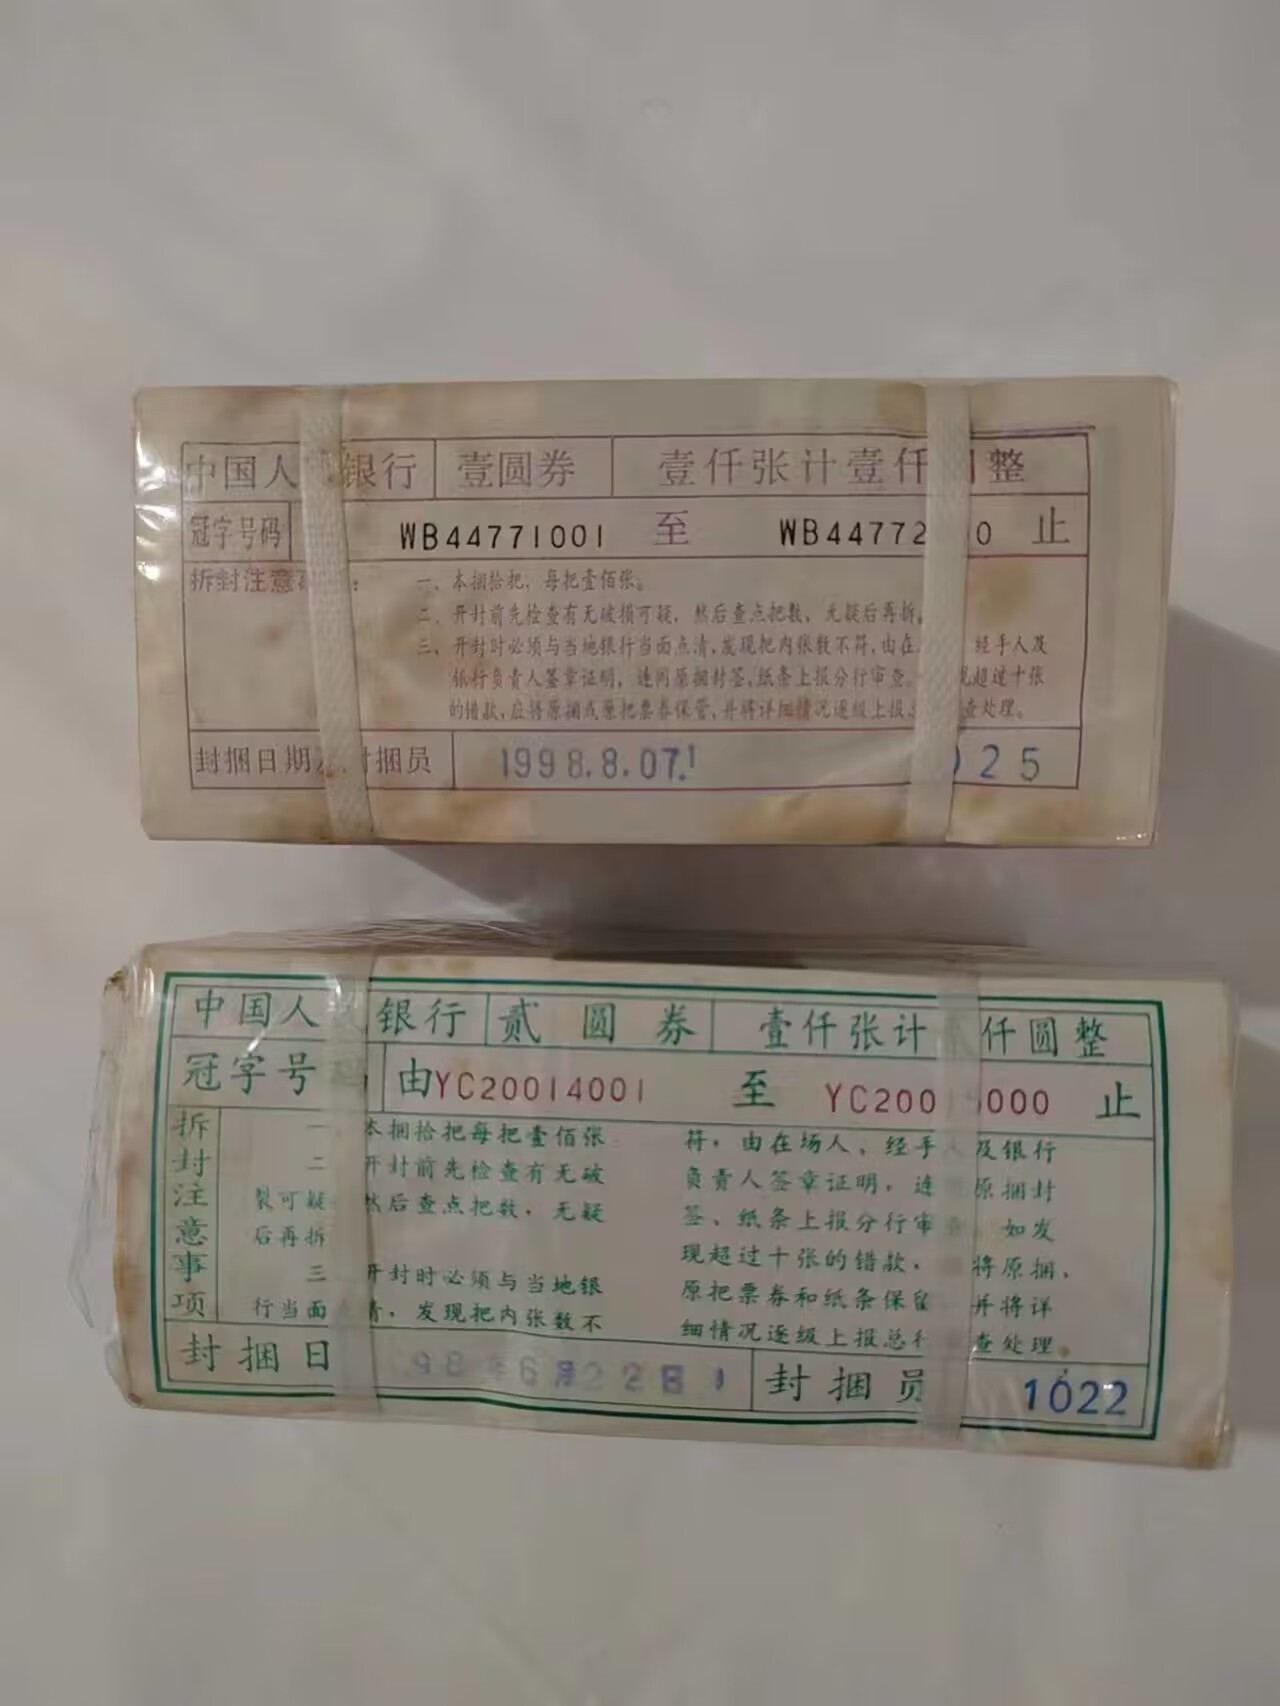 中国人 银行 壹圆券 壹仟张计壹仟 整
冠字号码 WB44771001 至 WB44772 0 止
拆封注意 : 一、本捆拾把，每把壹佰张。
二、开封前先检查有无破损可疑，然后查点把数，无疑后再拆。
三、开封时必须与当地银行当面点清，发现把内张数不符，由在 经手人及
银行负责人签章证明，连同原捆封签，纸条上报分行审查。 现超过十张
的错款，应将原捆或原把票券保管，并将详细情况逐级上报 查处理。
封捆日期 封捆员 1998.8.07.1 25
中国人 银行 贰圆券 壹仟张计 仟圆整
冠字号 由YC20014001 至 YC200 000 止
拆封注意事项
一 本捆拾把每把壹佰张
二 开封前先检查有无破
裂可疑 然后查点把数，无疑
后再拆
三 开封时必须与当地银
行当面 清，发现把内张数不
符，由在场人、经手 及银行
负责人签章证明，连 原捆封
签、纸条上报分行审 如发
现超过十张的错款， 将原捆、
原把票券和纸条保留 并将详
细情况逐级上报总行 查处理。
封捆日 98年6月22日 1 封捆员 1022